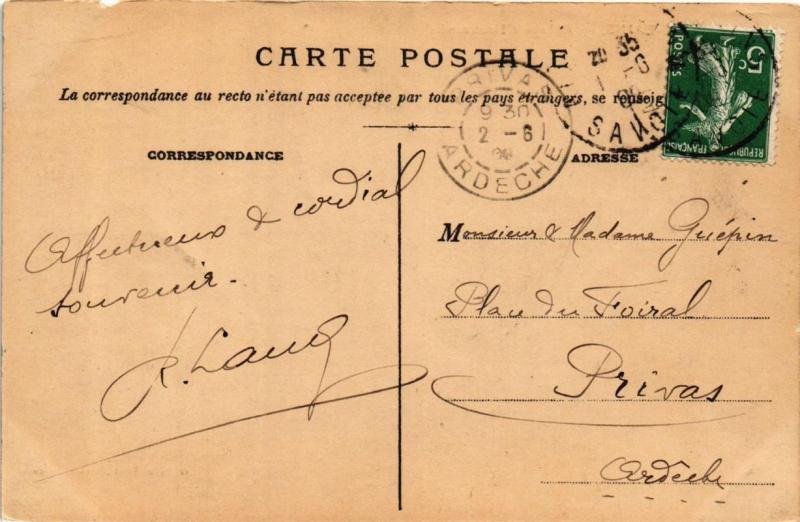 CARTE POSTALE
La correspondance au recto n'étant pas acceptée par tous les pays étrangers, se renseig
CORRESPONDANCE
ADRESSE
PRIVAS
9 30
2 - 6
ARDECHE
20 35
1 - 6
SAVOIE
5 c
POSTES
REPUBLIQUE FRANÇAISE
Affectueux & cordial
souvenir.
Monsieur & Madame Guépin
Plan du Foiral
Privas
Ardèche